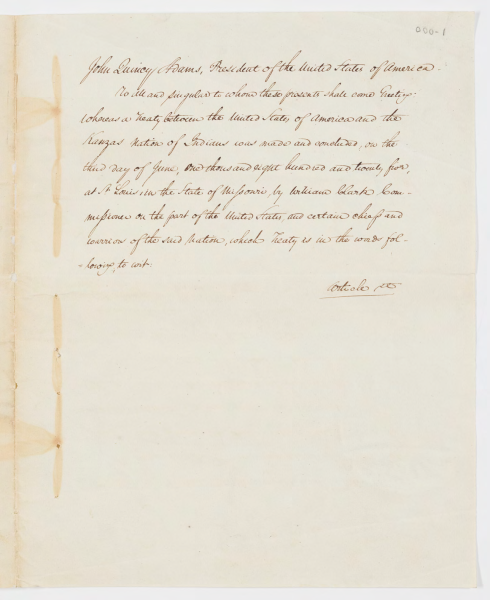 000-1
John Quincy Adams, President of the United States of America.
To all and singular to whom these presents shall come Greeting:
Whereas a Treaty between the United States of America and the
Kanzas Nation of Indians was made and concluded, on the
third day of June, One thousand eight hundred and twenty five,
at St Louis in the State of Missouri, by William Clark Com-
missioner on the part of the United States, and certain chiefs and
warriors of the said Nation, which Treaty is in the words fol-
-lowing, to wit:
Article 1st